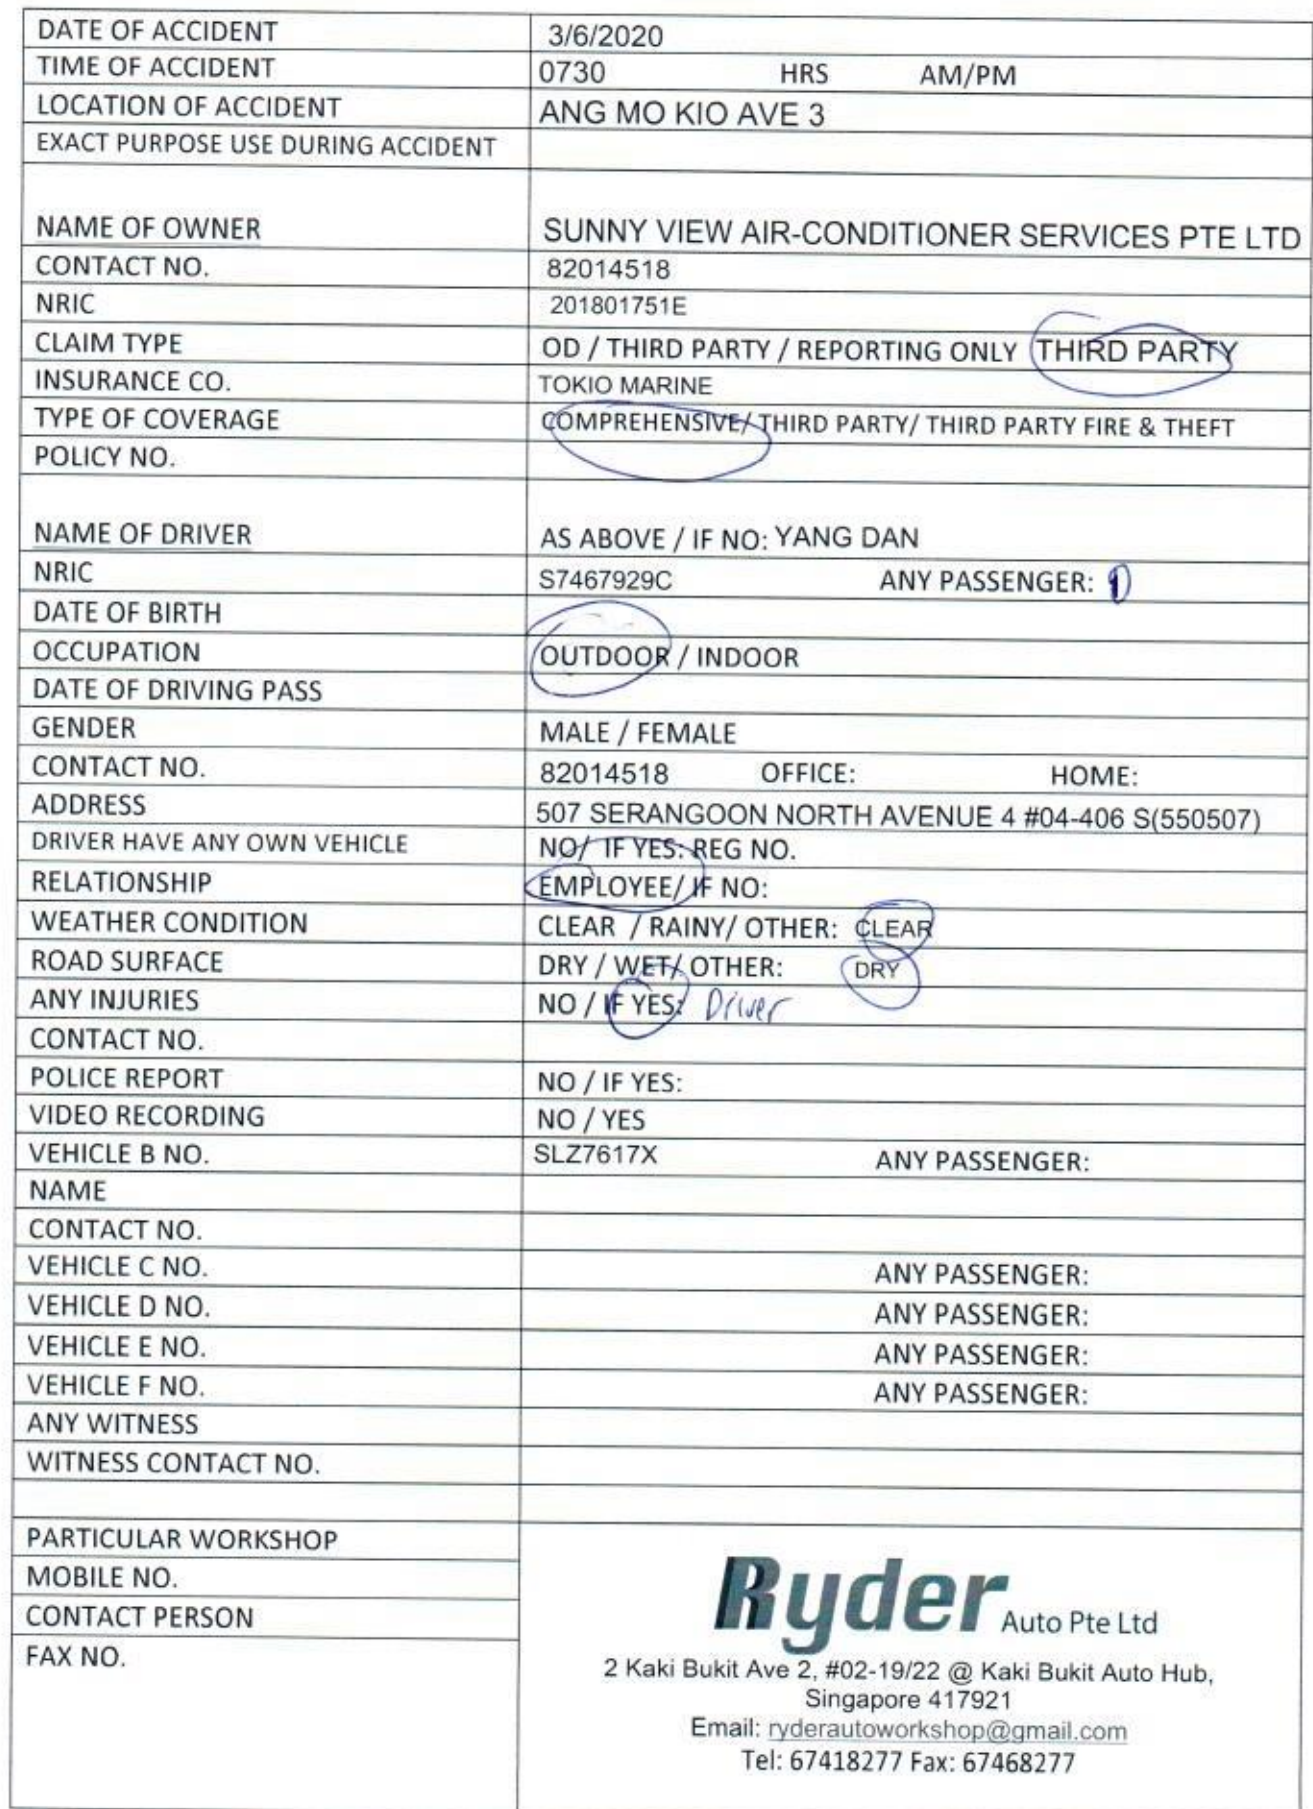 DATE OF ACCIDENT 3/6/2020
TIME OF ACCIDENT 0730 HRS AM/PM
LOCATION OF ACCIDENT ANG MO KIO AVE 3
EXACT PURPOSE USE DURING ACCIDENT
NAME OF OWNER SUNNY VIEW AIR-CONDITIONER SERVICES PTE LTD
CONTACT NO. 82014518
NRIC 201801751E
CLAIM TYPE OD / THIRD PARTY / REPORTING ONLY THIRD PARTY
INSURANCE CO. TOKIO MARINE
TYPE OF COVERAGE COMPREHENSIVE/ THIRD PARTY/ THIRD PARTY FIRE & THEFT
POLICY NO.
NAME OF DRIVER AS ABOVE / IF NO: YANG DAN
NRIC S7467929C ANY PASSENGER:
DATE OF BIRTH
OCCUPATION OUTDOOR / INDOOR
DATE OF DRIVING PASS
GENDER MALE / FEMALE
CONTACT NO. 82014518 OFFICE: HOME:
ADDRESS 507 SERANGOON NORTH AVENUE 4 #04-406 S(550507)
DRIVER HAVE ANY OWN VEHICLE NO/ IF YES: REG NO.
RELATIONSHIP EMPLOYEE/ IF NO:
WEATHER CONDITION CLEAR / RAINY/ OTHER: CLEAR
ROAD SURFACE DRY / WET/ OTHER: DRY
ANY INJURIES NO / IF YES: Driver
CONTACT NO.
POLICE REPORT NO / IF YES:
VIDEO RECORDING NO / YES
VEHICLE B NO. SLZ7617X ANY PASSENGER:
NAME
CONTACT NO.
VEHICLE C NO. ANY PASSENGER:
VEHICLE D NO. ANY PASSENGER:
VEHICLE E NO. ANY PASSENGER:
VEHICLE F NO. ANY PASSENGER:
ANY WITNESS
WITNESS CONTACT NO.
PARTICULAR WORKSHOP
MOBILE NO.
CONTACT PERSON
FAX NO.
Ryder Auto Pte Ltd
2 Kaki Bukit Ave 2, #02-19/22 @ Kaki Bukit Auto Hub,
Singapore 417921
Email: ryderautoworkshop@gmail.com
Tel: 67418277 Fax: 67468277